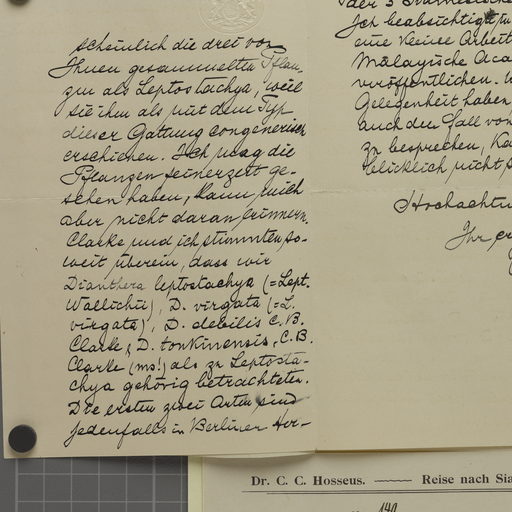 scheinlich die drei von
Ihnen gesammelten Pflan-
zen als Leptostachya, weil
sie ihm als mit dem Typ
dieser Gattung congenerisch
erschienen. Ich mag die
Pflanzen seinerzeit ge-
sehen haben, kann mich
aber nicht daran erinnern.
Clarke und ich stimmten so-
weit überein, dass wir
Dianthera leptostachya (=Lept.
Wallichii), D. virgata (=L.
virgata), D. debilis C.B.
Clarke, D. tonkinensis, C.B.
Clarke (ms!) als zu Leptosta-
chya gehörig betrachteten.
Die ersten zwei Arten sind
jedenfalls in Berliner Her-
der 3
Ich beabsichtige
eine kleine Arbeit
Malayische Aca
veröffentlichen.
Gelegenheit haben
auch den Fall von
zu besprechen, Ka
blicklich nicht
Hochachtu
Ihr er
Dr. C. C. Hosseus. Reise nach Sia
140